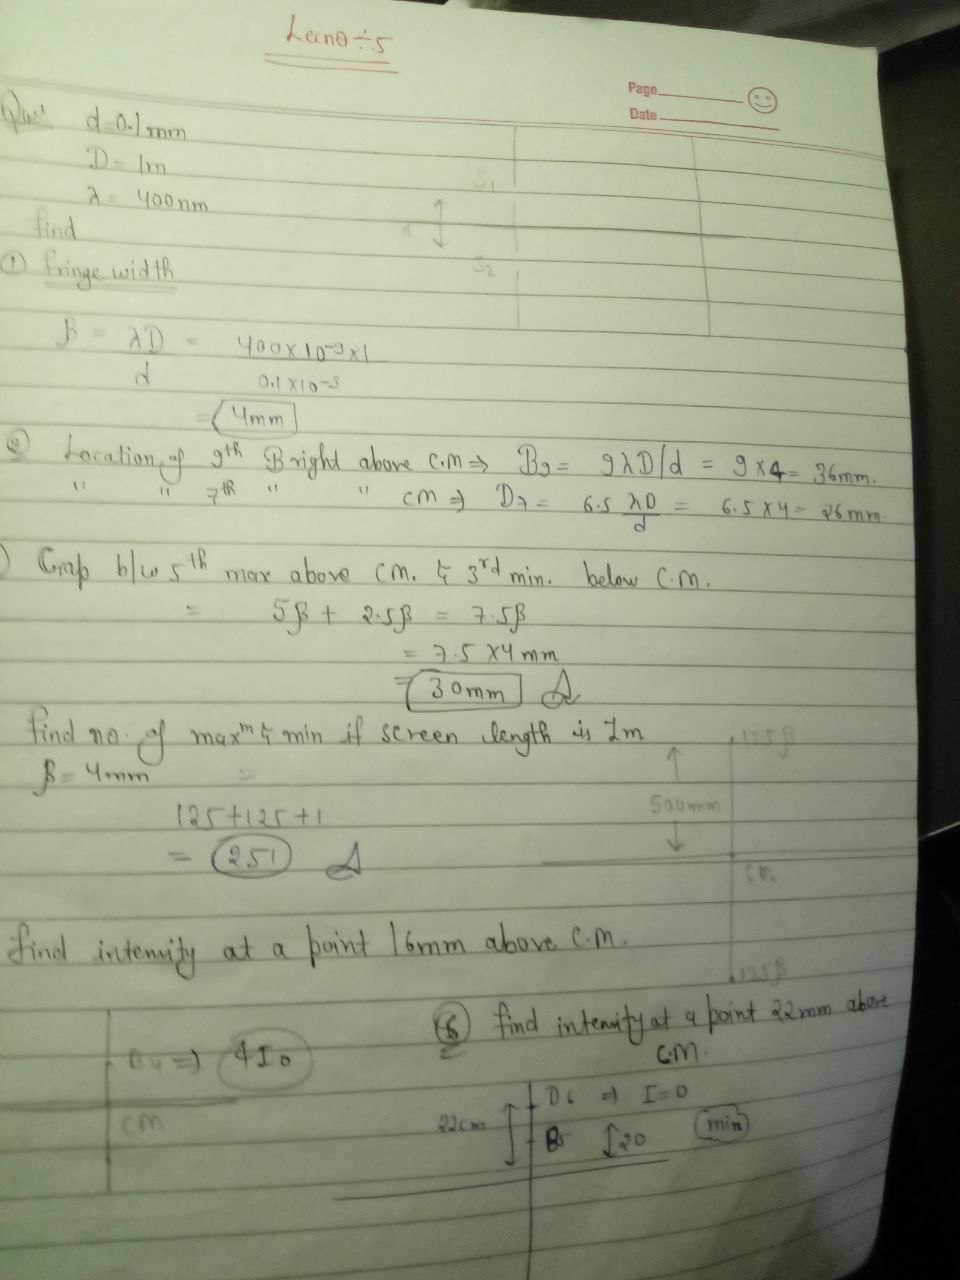 Lecno ÷ 5
Page
Date
Que:
d = 0.1mm
D = 1m
λ = 400nm
find
S1
d
S2
① fringe width
β = λD/d = 400×10^-9×1 / 0.1×10^-3
= 4mm
② Location of 9th Bright above C.M ⇒ B9 = 9λD/d = 9×4 = 36mm.
" " 7th " " CM ⇒ D7 = 6.5 λD/d = 6.5×4 = 26mm.
Gap b/w 5th max above CM. & 3rd min. below C.M.
= 5β + 2.5β = 7.5β
= 7.5×4mm
= 30mm
find no. of maxm & min if screen length is 1m
β = 4mm =
125β
500mm
CM
125β
125+125+1
= 251
find intensity at a point 16mm above C.M.
B4 ⇒ 4I0
CM
⑥ find intensity at a point 22mm above
C.M.
22cm
D6 ⇒ I=0
B5 20 min